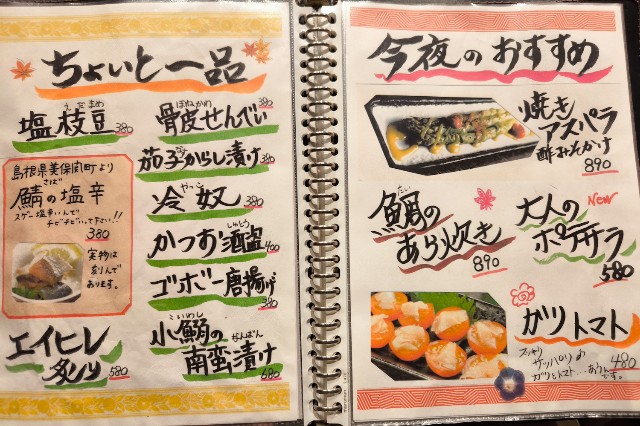 ちょいと一品
えだまめ
塩枝豆 380
島根県美保関町より
さば
鯖の塩辛
スゲー塩辛いんで
チビチビいって下さい!!
380
実物は
刻んで
あります。
エイヒレ
炙り 580
ほねかわ
骨皮せんべい 380
茄子からし漬け 380
やっこ
冷奴 380
しゅとう
かつお酒盗 400
ゴボー唐揚げ 380
こいわし
小鰯の
なんばん
南蛮漬け 680
今夜のおすすめ
焼き
アスパラ
酢みそかけ
890
たい
鯛の
あら炊き
890
New
大人の
ポテサラ
580
ガリトマト
スッキリ
サッパリの
ガリとトマト…
480